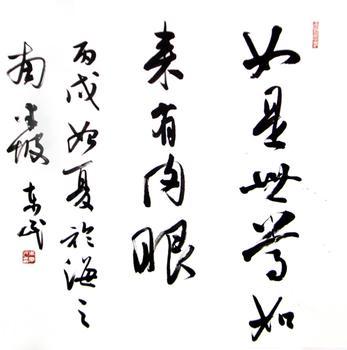 如是世尊如
来有肉眼
丙戌初夏於海之
南 坡
东民